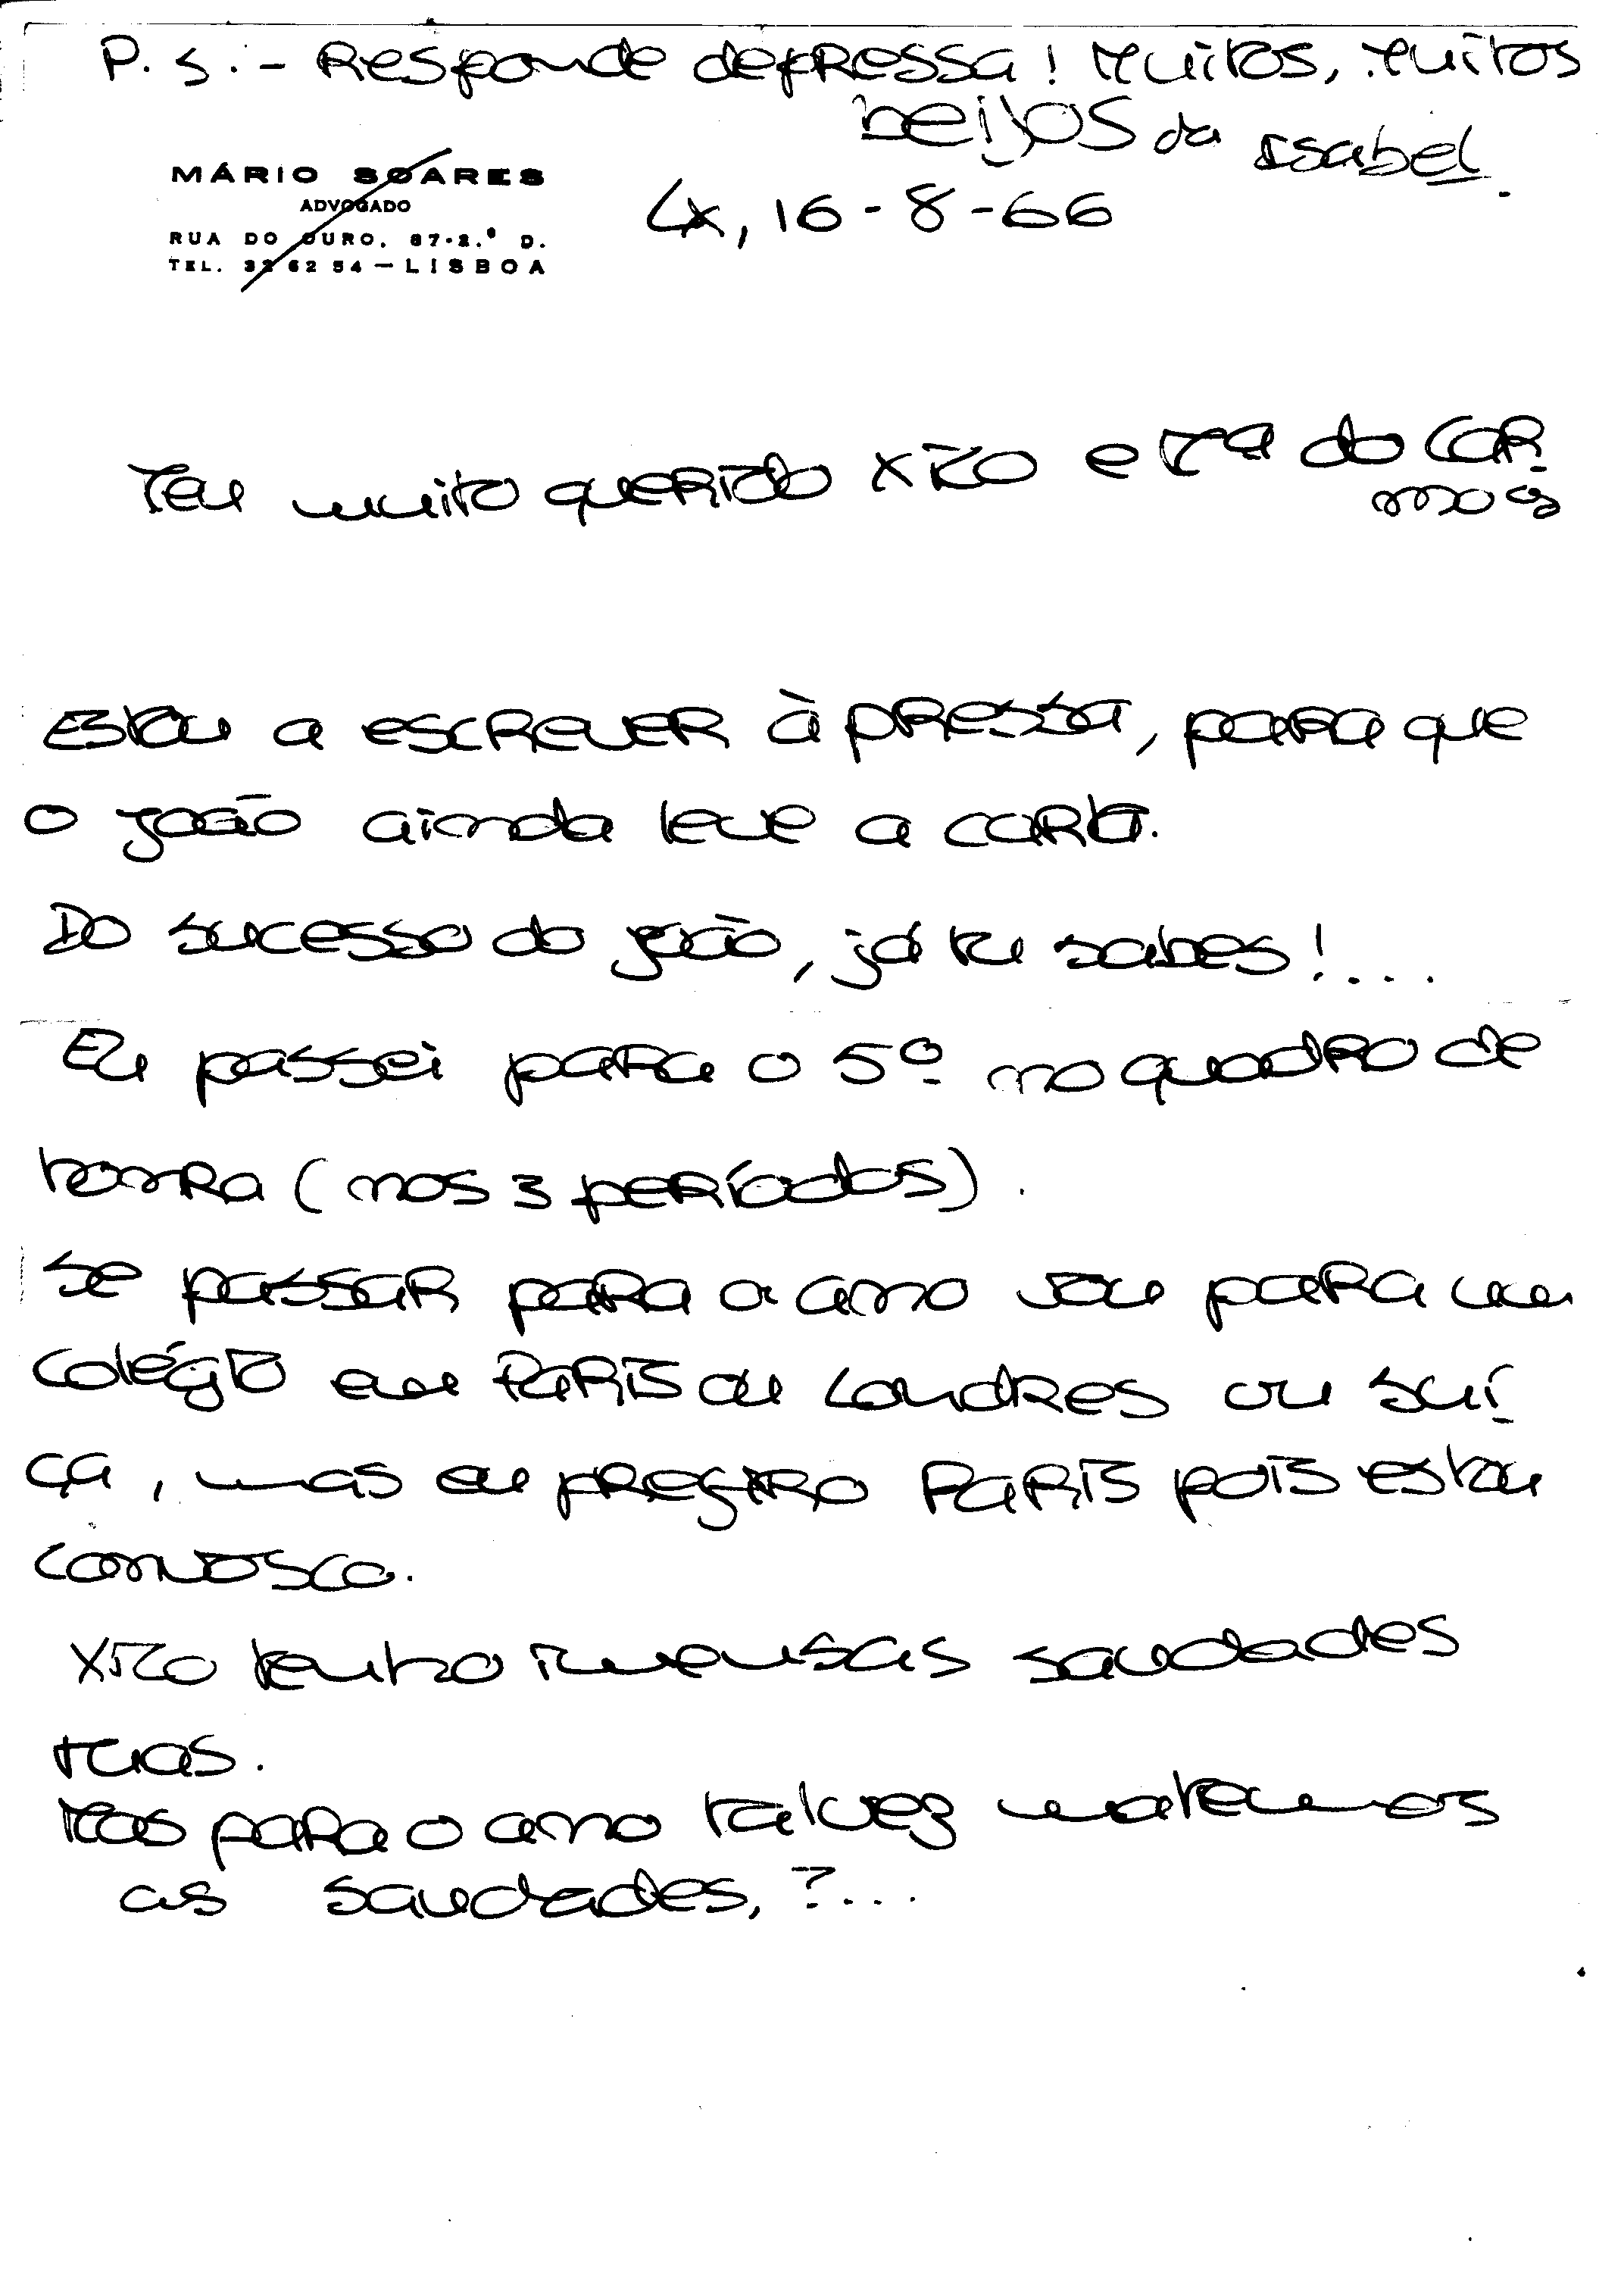 P.S.- Responde depressa! Muitos, muitos
beijos da Isabel.
MÁRIO SOARES
ADVOGADO
RUA DO OURO, 87-2.º D.
TEL. 32 62 54 — LISBOA
Lx, 16-8-66
Meu muito querido Xico e Mª do Car-
mo
Estou a escrever à pressa, para que
o João ainda leve a carta.
Do sucesso do João, já tu sabes!...
Eu passei para o 5º no quadro de
honra (nos 3 períodos).
Se passar para o ano vou para um
colégio em Paris ou Londres ou Suí-
ça, mas eu prefiro Paris pois estou
convosco.
Xico tenho imensas saudades
tuas.
Mas para o ano talvez matemos
as saudades, ?...